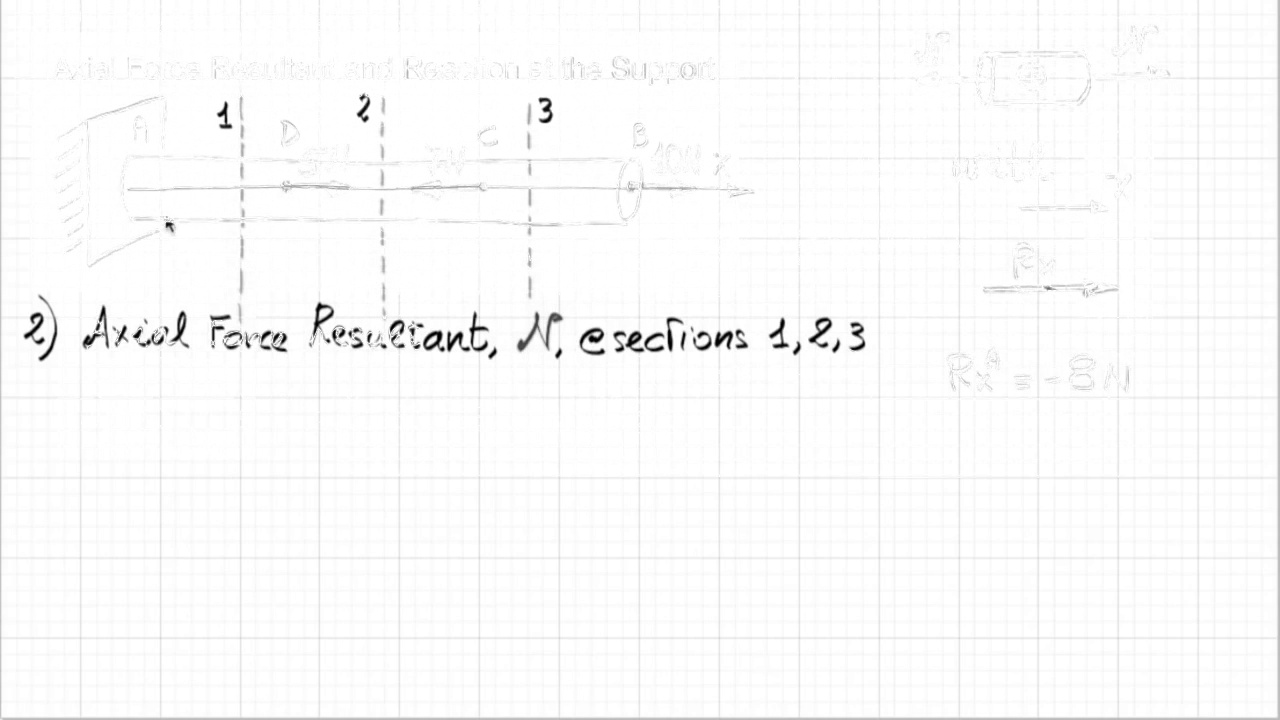 Axial Force Resultant and Reaction at the Support
1 2 3
A D 5N 7N C B 10N x
N N
with
x
Rx
2) Axial Force Resultant, N, @ sections 1, 2, 3
RxA = -8N